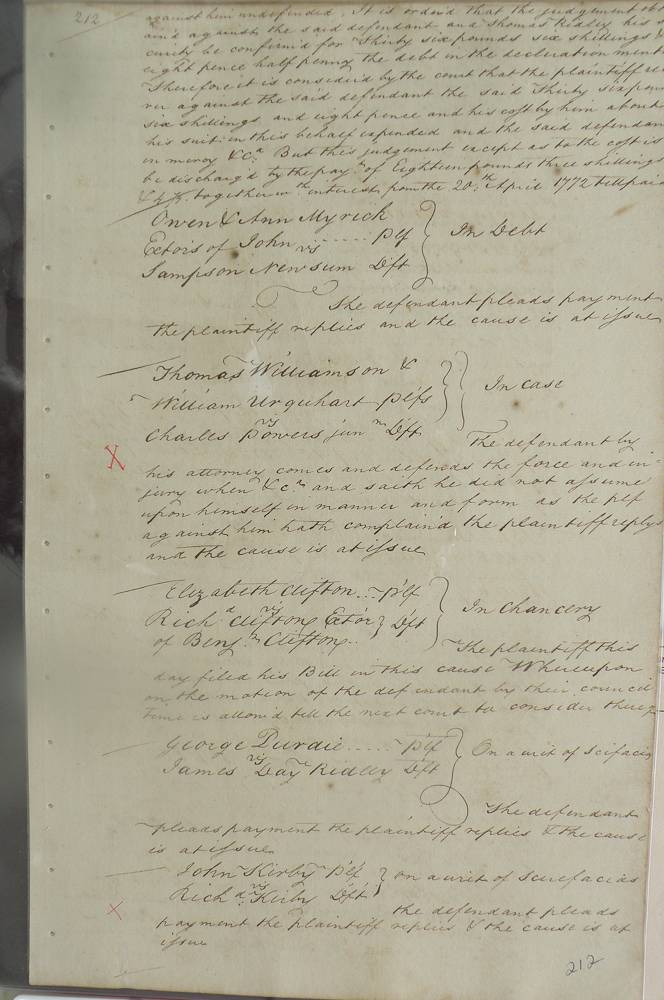 212
against him undefended. It is ordered that the judgement
and against the said defendant and Thomas Ridley his
curity be confirmed for Thirty six pounds six shillings &
eight pence half penny the debt in the declaration
Therefore it is considered by the court that the plaintiff
ver against the said defendant the said Thirty six
six shillings and eight pence and his cost by him about
his suit in this behalf expended and the said defendan
in mercy &c.a But this judgement except as to the cost is
be discharg'd by the paym.t of Eighteen pounds three shillings
together w.th interest from the 20.th April 1772 till paid
Owen & Ann Myrick
Ectors of John ...... plf } In Debt
vs
Sampson Newsum Dft
The defendant pleads payment
the plaintiff replies and the cause is at issue
Thomas Williamson &
William Urquhart plfs } In case
vs
Charles Powers jun.r Dft
The defendant by
X
his attorney comes and defends the force and in=
jury when &c.a and saith he did not assume
upon himself in manner and form as the plf
against him hath complain'd the plaintiff replys
and the cause is at issue
Elizabeth Clifton ... plf
vs
Rich.d Clifton Ector } Dft } In Chancery
of Benj.n Clifton
The plaintiff this
day filed his Bill in this cause Whereupon
on the motion of the defendant by their council
time is allow'd till the next court to consider thereof
George Purdie ...... plf } On a writ of Scifacias
vs
James Day Ridley Dft
The defendant
pleads payment the plaintiff replies & the cause
is at issue
John Kirby plf } on a writ of Scirefacias
vs
Rich.d Kirby Dft
X
the defendant pleads
payment the plaintiff replies & the cause is at
issue
212